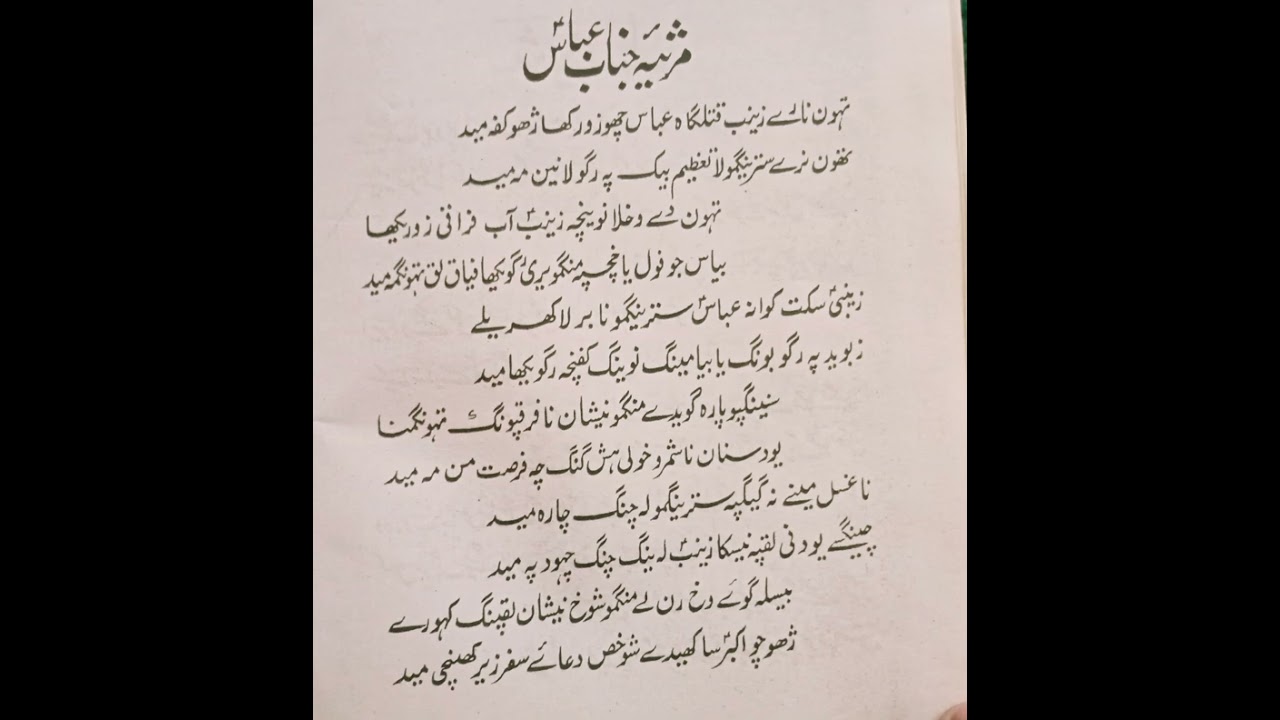 مرثیۂ جناب عباسؑ
تہون نارے زینب قتلگاہ عباس چھوزور کھا ژھوکفہ مید
تھون نرے سترینگمولا تعظیم بیک پہ رگولا نین مہ مید
تہون دے وخلا نوینچہ زینبؑ آب فراقی زوریکھا
بیاس جو فول یا خچپہ منگمو یرگویکھا فیاق لق تہونگمہ مید
زینبیؑ سکت کوانہ عباسؑ سترینگمو نا بر لاکھریلے
زبوید پہ رگو بونگ یا بیا مینگ نوینگ کفنچہ رگویکھا مید
سنینگپو پارہ گویدے منگمو نیشان نا فرقپونگ تہونگمنا
یودسنان نا شمرو خولی ہش گنگ چہ فرصت من مہ مید
نا غسل مینے نہ گیگپہ سترینگمولہ چنگ چارہ مید
چھینگے یودنی لقپہ نیسکا زینبؑ لہ ینگ چنگ چہود پہ مید
بیسلہ گوے دخ رن لے منگمو شوخ نیشان لقپنگ کہورے
ژھوچو اکبرؑ ساکھیدے شوخص دعائے سفر زیر کھنچی مید